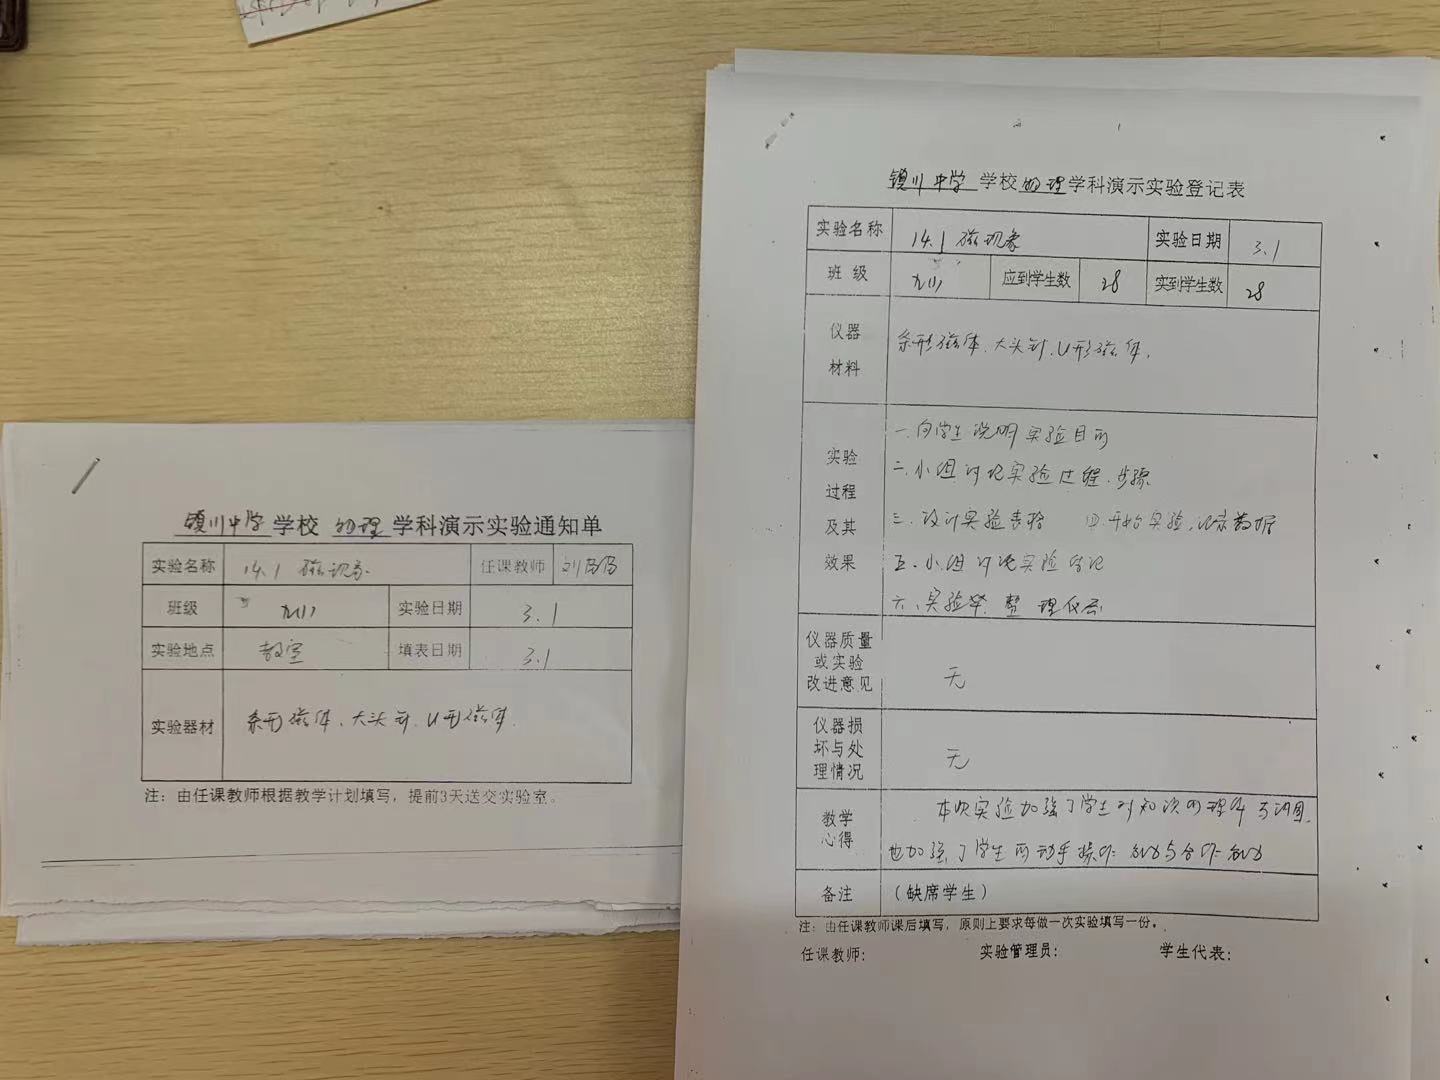 镇川中学 学校 物理 学科演示实验通知单
实验名称 14.1 磁现象 任课教师
班级 九(1) 实验日期 3.1
实验地点 教室 填表日期 3.1
实验器材 条形磁体、大头针、U形磁体.
注：由任课教师根据教学计划填写，提前3天送交实验室。
镇川中学 学校 物理 学科演示实验登记表
实验名称 14.1 磁现象 实验日期 3.1
班级 九(1) 应到学生数 28 实到学生数 28
仪器
材料
条形磁体、大头针、U形磁体.
实验
过程
及其
效果
一.向学生说明实验目的
二、小组讨论实验过程、步骤
三、设计实验表格 四.开始实验,记录数据
五、小组讨论实验结论
六、实验毕 整理仪器
仪器质量
或实验
改进意见
无
仪器损
坏与处
理情况
无
教学
心得
本次实验加强了学生对知识的理解与巩固,
也加强了学生的动手操作能力与合作能力
备注 （缺席学生）
注：由任课教师课后填写，原则上要求每做一次实验填写一份。
任课教师： 实验管理员： 学生代表：